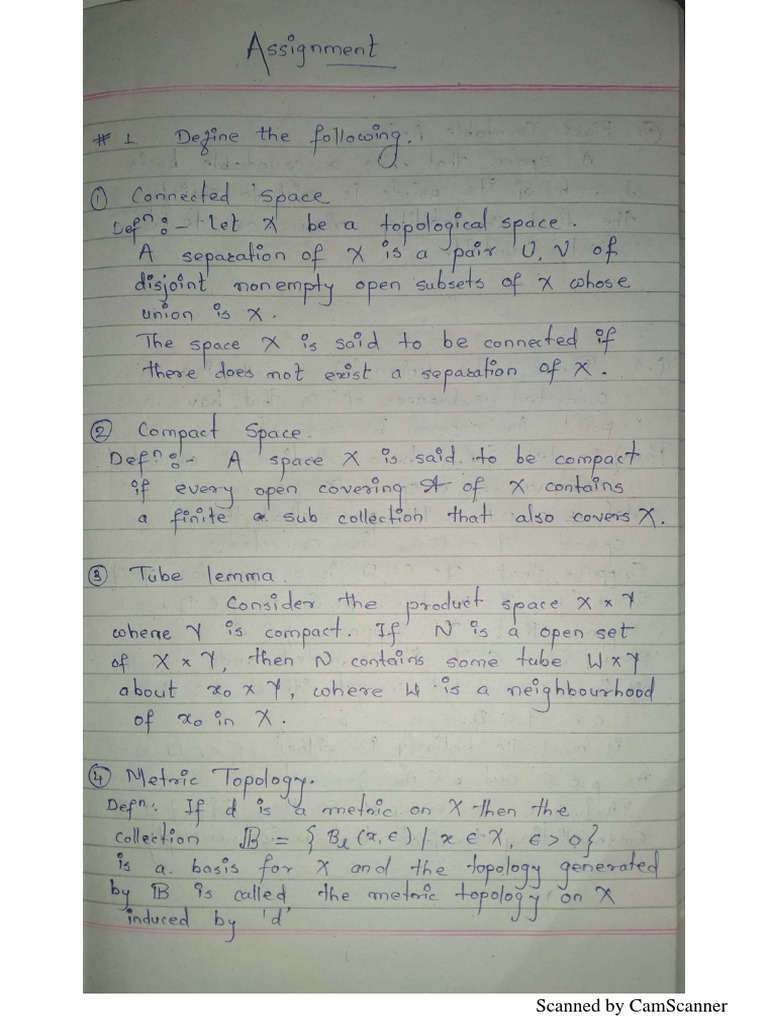 Assignment
# 1. Define the following.
① Connected space
Defⁿ:- Let X be a topological space.
A separation of X is a pair U, V of
disjoint nonempty open subsets of X whose
union is X.
The space X is said to be connected if
there does not exist a separation of X.
② Compact Space.
Defⁿ:- A space X is said to be compact
if every open covering A of X contains
a finite sub collection that also covers X.
③ Tube lemma.
Consider the product space X x Y
where Y is compact. If N is a open set
of X x Y, then N contains some tube W x Y
about x₀ x Y, where W is a neighbourhood
of x₀ in X.
④ Metric Topology.
Defⁿ: If d is a metric on X then the
collection 𝔹 = { B (x, ϵ) | x ϵ X, ϵ > 0}
is a basis for X and the topology generated
by 𝔹 is called the metric topology on X
induced by 'd'
Scanned by CamScanner